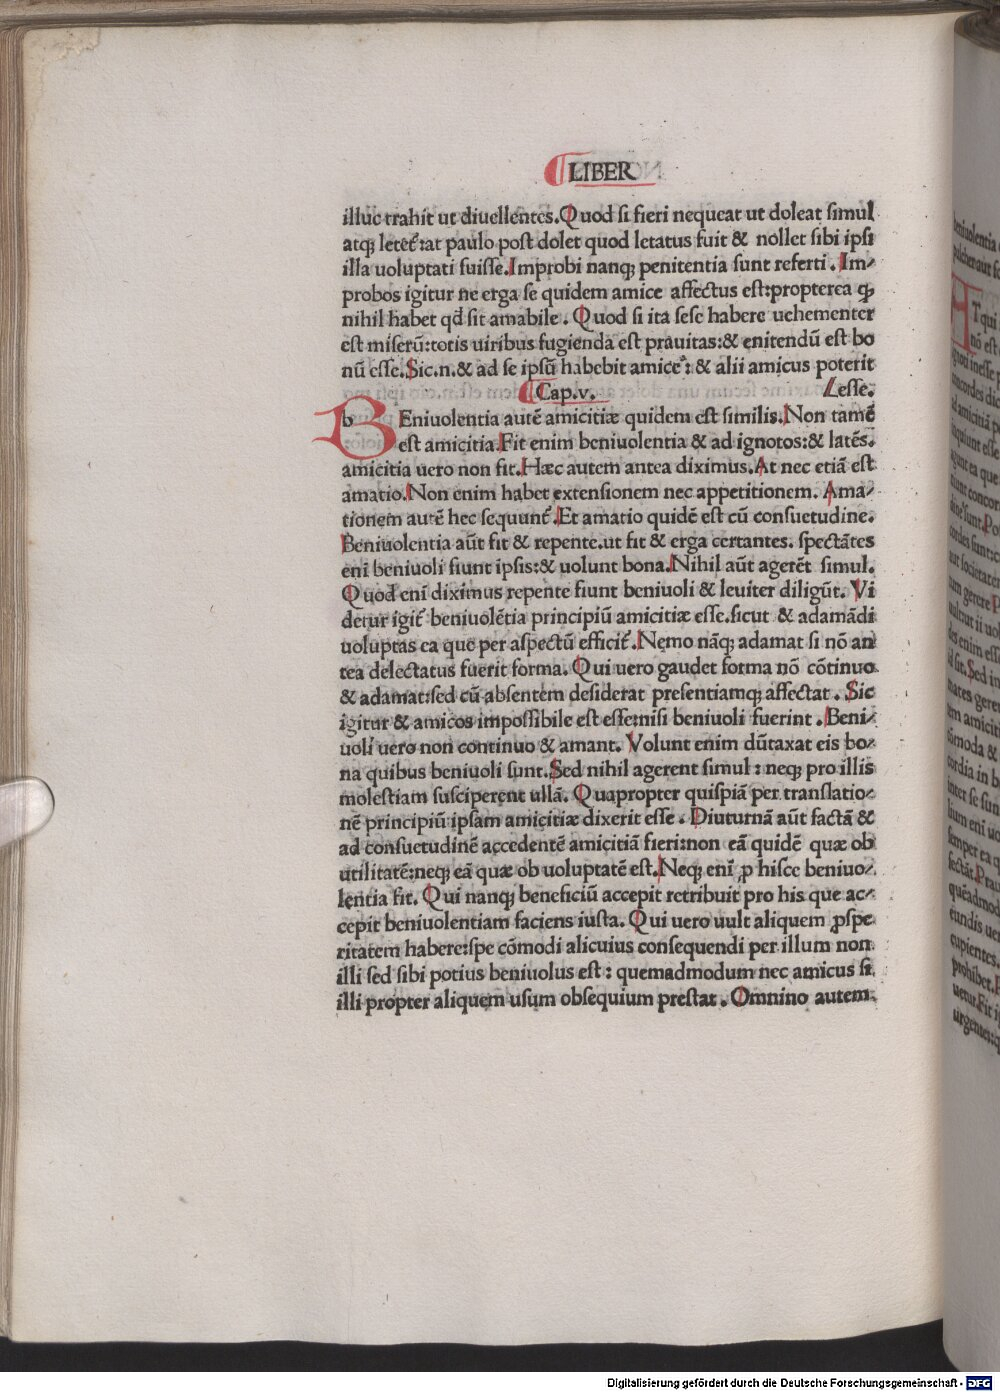 LIBER
illuc trahit ut diuellentes. Quod si fieri nequeat ut doleat simul
atqꝫ letet᷑: at paulo post dolet quod letatus fuit & nollet sibi ipsi
illa uoluptati fuisse. Improbi nanqꝫ penitentia sunt referti. Im⸗
probos igitur ne erga se quidem amice affectus est: propterea ꝙ
nihil habet qd̃ sit amabile. Quod si ita sese habere uehementer
est miserũ: totis uiribus fugienda est prauitas: & enitendũ est bo
nũ esse. Sic .n. & ad se ipsũ habebit amice: & alii amicus poterit
Cap. v. Lesse.
bEniuolentia autẽ amicitiæ quidem est similis. Non tamẽ
est amicitia. Fit enim beniuolentia & ad ignotos: & latẽs.
amicitia uero non fit. Hæc autem antea diximus. At nec etiã est
amatio. Non enim habet extensionem nec appetitionem. Ama⸗
tionem autẽ hec sequunt᷑. Et amatio quidẽ est cũ consuetudine.
Beniuolentia aũt fit & repente. ut fit & erga certantes. spectãtes
eni beniuoli fiunt ipsis: & uolunt bona. Nihil aũt agerẽt simul.
Quod eni diximus repente fiunt beniuoli & leuiter diligũt. Vi
detur igit᷑ beniuolẽtia principiũ amicitiæ esse. sicut & adamãdi
uoluptas ea que per aspectũ efficit᷑. Nemo nãqꝫ adamat si nõ an
tea delectatus fuerit forma. Qui uero gaudet forma nõ cõtinuo
& adamat: sed cũ absentem desiderat presentiamqꝫ affectat. Sic
igitur & amicos impossibile est esse: nisi beniuoli fuerint. Beni⸗
uoli uero non continuo & amant. Volunt enim dũtaxat eis bo⸗
na quibus beniuoli sunt. Sed nihil agerent simul: neqꝫ pro illis
molestiam susciperent ullã. Quapropter quispiã per translatio⸗
nẽ principiũ ipsam amicitiæ dixerit esse. Diuturnã aũt factã &
ad consuetudinẽ accedentẽ amicitiã fieri: non eã quidẽ quæ ob
utilitatẽ: neqꝫ eã quæ ob uoluptatẽ est. Neqꝫ eni ꝓ hisce beniuo⸗
lentia fit. Qui nanqꝫ beneficiũ accepit retribuit pro his que ac⸗
cepit beniuolentiam faciens iusta. Qui uero uult aliquem ꝓspe
ritatem habere: spe cõmodi alicuius consequendi per illum non
illi sed sibi potius beniuolus est: quemadmodum nec amicus si
illi propter aliquem usum obsequium prestat. Omnino autem
Digitalisierung gefördert durch die Deutsche Forschungsgemeinschaft - DFG